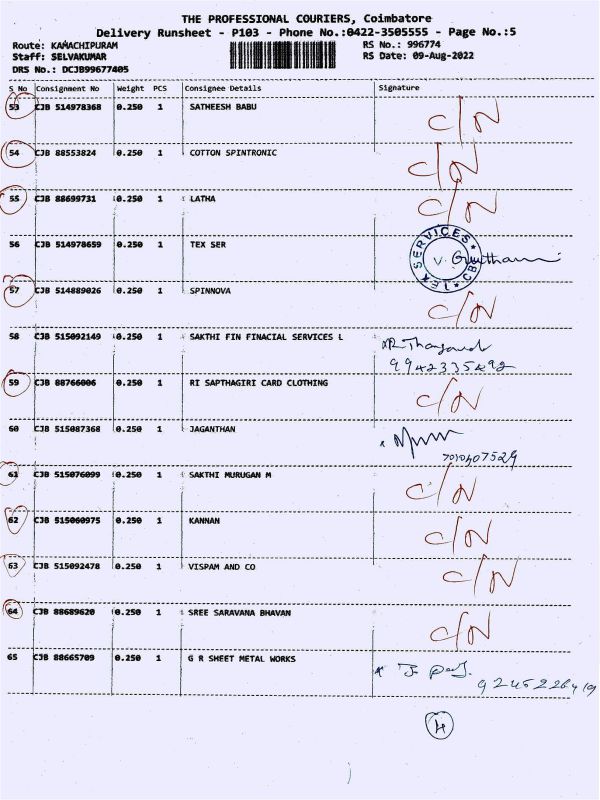 THE PROFESSIONAL COURIERS, Coimbatore
Delivery Runsheet - P103 - Phone No.:0422-3505555 - Page No.:5
Route: KAMACHIPURAM RS No.: 996774
Staff: SELVAKUMAR RS Date: 09-Aug-2022
DRS No.: DCJB99677405
S No Consignment No Weight PCS Consignee Details Signature
53 CJB 514978368 0.250 1 SATHEESH BABU C/N
54 CJB 88553824 0.250 1 COTTON SPINTRONIC C/N
55 CJB 88699731 0.250 1 LATHA C/N
56 CJB 514978659 0.250 1 TEX SER TEX SERVICES CBE
57 CJB 514889026 0.250 1 SPINNOVA C/N
58 CJB 515092149 0.250 1 SAKTHI FIN FINACIAL SERVICES L
9942335492
59 CJB 88766006 0.250 1 RI SAPTHAGIRI CARD CLOTHING C/N
60 CJB 515087368 0.250 1 JAGANTHAN
7010407529
61 CJB 515076099 0.250 1 SAKTHI MURUGAN M C/N
62 CJB 515060975 0.250 1 KANNAN C/N
63 CJB 515092478 0.250 1 VISPAM AND CO C/N
64 CJB 88689620 0.250 1 SREE SARAVANA BHAVAN C/N
65 CJB 88665709 0.250 1 G R SHEET METAL WORKS